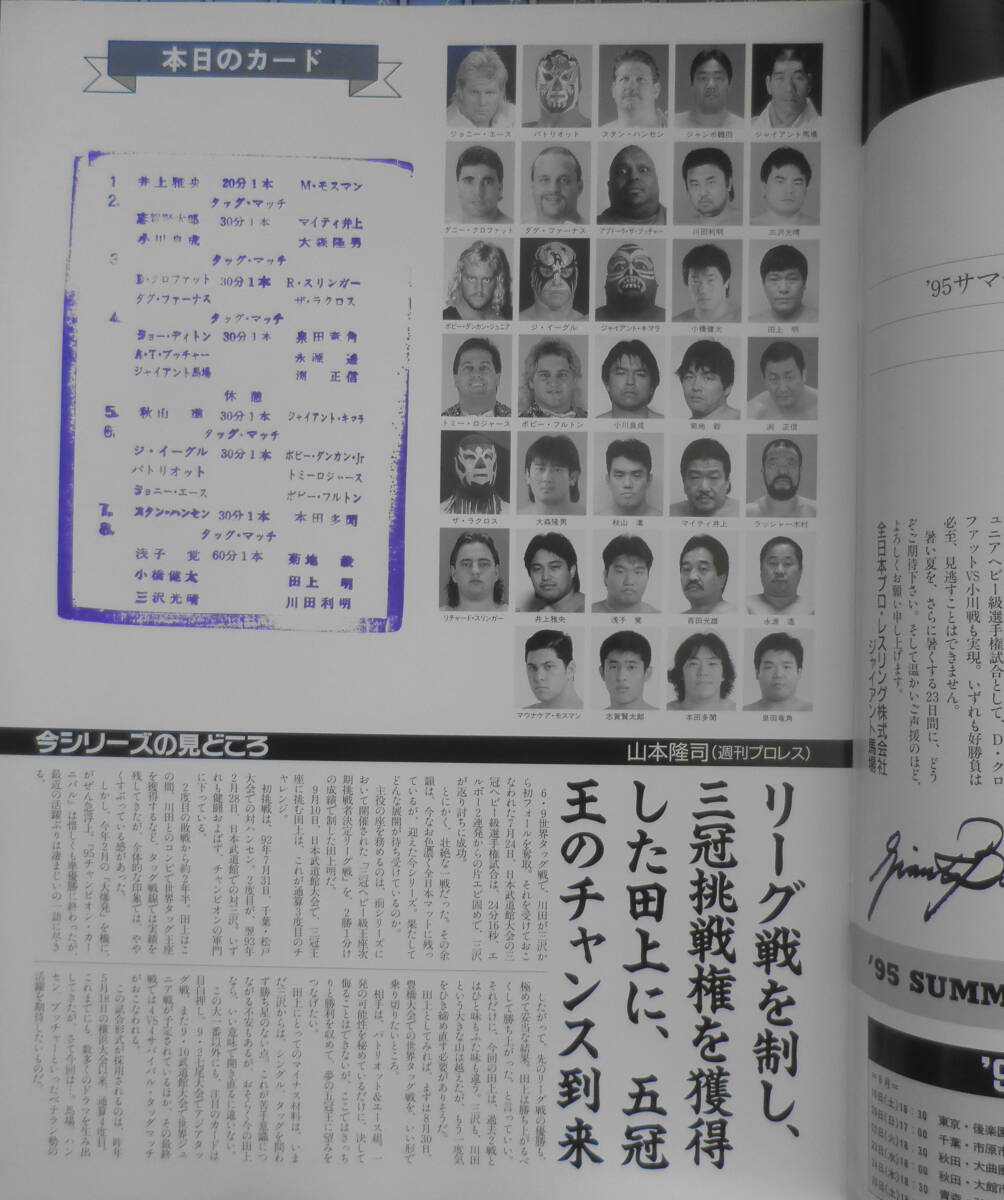 本日のカード
1 井上雅央 20分1本 M・モスマン
2. タッグ・マッチ
30分1本 マイティ井上
大森隆男
3 タッグ・マッチ
D・クロファット 30分1本 R・スリンガー
ダグ・ファーナス ザ・ラクロス
4. タッグ・マッチ
ジョー・ディトン 30分1本 泉田竜角
A・T・ブッチャー 永源遙
ジャイアント馬場 渕正信
休憩
5. 秋山準 30分1本 ジャイアント・キマラ
6. タッグ・マッチ
ジ・イーグル 30分1本 ボビー・ダンカン・Jr
パトリオット トミーロジャース
ジョニー・エース ボビー・フルトン
7. スタン・ハンセン 30分1本 本田多聞
8. タッグ・マッチ
浅子覚 60分1本 菊地毅
小橋健太 田上明
三沢光晴 川田利明
ジョニー・エース パトリオット スタン・ハンセン ジャンボ鶴田 ジャイアント馬場
ダニー・クロファット ダグ・ファーナス アブドーラ・ザ・ブッチャー 川田利明 三沢光晴
ボビー・ダンカン・ジュニア ジ・イーグル ジャイアント・キマラ 小橋健太 田上明
トミー・ロジャース ボビー・フルトン 小川良成 菊地毅 渕正信
ザ・ラクロス 大森隆男 秋山準 マイティ井上 ラッシャー木村
リチャード・スリンガー 井上雅央 浅子覚 百田光雄 永源遙
マウナケア・モスマン 志賀賢太郎 本田多聞 泉田竜角
今シリーズの見どころ
山本隆司(週刊プロレス)
リーグ戦を制し、
三冠挑戦権を獲得
した田上に、五冠
王のチャンス到来
6・9世界タッグ戦で、川田が三沢か
ら初フォールを奪取。それを受けておこ
なわれた7月24日、日本武道館大会の三
冠ヘビー級選手権試合は、24分16秒、エ
ルボー2連発からの片エビ固めで、三沢
が返り討ちに成功。
とにかく、壮絶な一戦だった。その余
韻は、今なお色濃く全日本マットに残っ
ているが、迎えた今シリーズ、果たして
どんな展開が待ち受けているのか。
主役の座を務めるのは、前シリーズに
おいて開催された「三冠ヘビー級王座次
期挑戦者決定リーグ戦」を、2勝1分け
の成績で制した田上明だ。
9月10日、日本武道館大会で、三冠王
座に挑む田上は、これが通算3度目のチ
ャレンジ。
初挑戦は、92年7月31日、千葉・松戸
大会での対ハンセン。2度目が、翌93年
2月28日、日本武道館での対三沢。いず
れも健闘およばず、チャンピオンの軍門
に下っている。
2度目の敗戦から約2年半、田上はこ
の間、川田とのコンビで世界タッグ王座
を獲得するなど、タッグ戦線では実績を
残してきたが、全体的な印象では、やや
くすぶっている感があった。
しかし、今年2月の〝大爆発〟を機に、
がぜん急浮上。「'95チャンピオン・カー
ニバル」は惜しくも準優勝に終わったが、
最近の活躍ぶりは凄まじいの一語に尽き
る。
したがって、先のリーグ戦の優勝も、
極めて妥当な結果。田上は勝ち上がるべ
くして勝ち上がった、と言っていい。
それだけに、今回の田上は、過去2戦と
はひと味もふた味も違う。三沢も、川田
という大きな山は越えたが、もう一度気
をひき締め直す必要がありそうだ。
田上としてみれば、まずは8月30日、
豊橋大会での世界タッグ戦を、いい形で
乗り切りたいところ。
相手は、パトリオット&エース組。一
発の可能性を秘めているだけに、決して
侮ることはできないが、ここではきっち
り勝利を収めて、夢の五冠王に望みを
つなげたい。
田上にとってのマイナス材料は、いま
だ三沢からは、シングル、タッグを問わ
ず勝ち星のない点。これが苦手意識につ
ながる不安もあるが、おそらく今の田上
なら、いい意味で開き直るに違いない。
この大一番以外にも、注目のカードは
目白押し。9・2土座大会でアジアタッ
グ戦、また9・10武道館大会で世界ジュ
ニア戦が予定されているほか、その最終
戦ではVS4サバイバル・タッグマッチ
がおこなわれる。
この試合形式が採用されるのは、昨年
5月18日の横浜大会以来、通算4度目。
これまでにも、数多くのドラマを生み出
してきたが、さて今回は…。馬場、ハン
セン、ブッチャーといったベテラン勢の
活躍を期待したいものだ。
'95サマ
ュニアヘビー級選手権試合として、D・クロ
ファットVS小川戦も実現。いずれも好勝負は
必至、見逃すことはできません。
暑い夏を、さらに暑くする23日間に、どう
ぞご期待下さい。そして温かいご声援のほど、
よろしくお願い申し上げます。
全日本プロ・レスリング株式会社
ジャイアント馬場
'95 SUMM
=9月=
東京・後楽園
千葉・市原市
秋田・大曲
秋田・大館市
青森